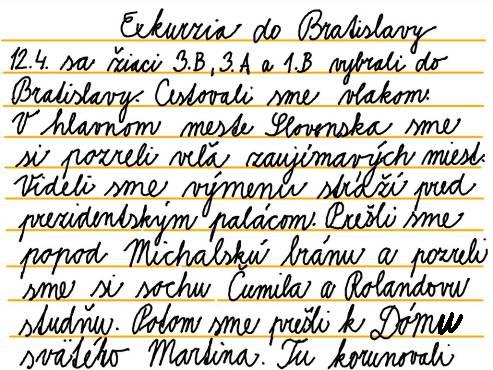 Exkurzia do Bratislavy
12.4. sa žiaci 3.B, 3.A a 1.B vybrali do
Bratislavy. Cestovali sme vlakom.
V hlavnom meste Slovenska sme
si pozreli veľa zaujímavých miest.
Videli sme výmenu stráží pred
prezidentským palácom. Prešli sme
popod Michalskú bránu a pozreli
sme si sochu Čumila a Rolandovu
studňu. Potom sme prešli k Dómu
svätého Martina. Tu korunovali